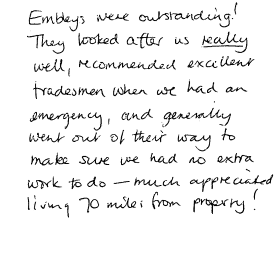 Embleys were outstanding!
They looked after us really
well, recommended excellent
tradesmen when we had an
emergency, and generally
went out of their way to
make sure we had no extra
work to do – much appreciated
living 70 miles from property!